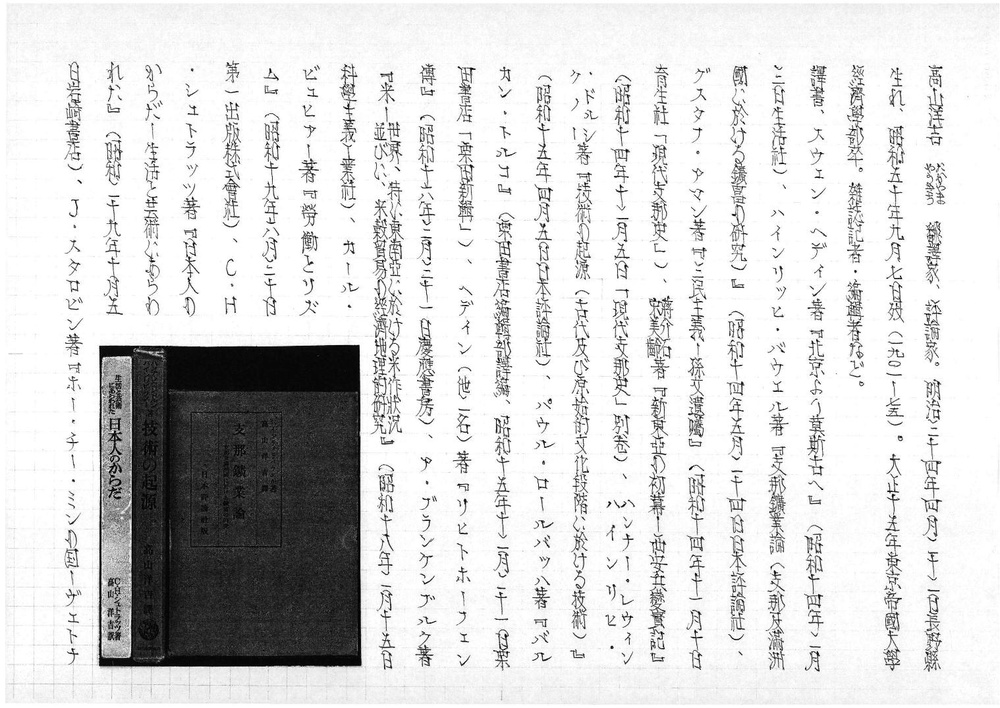 高山洋吉 たかやま ようきち 飜譯家、評論家。明治三十四年四月二十一日長野縣
生れ、昭和五十年九月七日歿(一九〇一-七五)。大正十五年東京帝國大學
經濟學部卒。雜誌記者・編輯者など。
譯書、スウェン・ヘディン著『北京より莫斯古へ』(昭和十四年二月
二日生活社)、ハインリッヒ・バウエル著『支那鑛業論(支那及滿洲
國に於ける鑛富の研究)』(昭和十四年五月二十四日日本評論社)、
グスタフ・アマン著『三民主義-孫文遺囑』(昭和十四年十一月十日
育生社「現代支那史一」)、蔣介石 宋美齡著『新東亞の初幕-西安五變實記』
(昭和十四年十二月五日「現代支那史」別卷)、ハンナー・レヴィン
・ドルシ著『技術の起源(古代及び原始的文化段階に於ける技術)』ハインリヒ・
クノー
(昭和十五年四月五日日本評論社)、パウル・ロールバッハ著『バル
カン・トルコ』(栗田書店編輯部譯編、昭和十五年十二月二十一日葉
田書店「栗田新輯」)、ヘディン(他二名)著『リヒトホーフェン
傳』(昭和十六年二月二十一日慶應書房)、ア・ブランケンブルク著
『米-世界、特に東南亞に於ける米作狀況 並びに、米穀貿易の經濟地理的硏究』(昭和十八年二月十五日
科學主義工業社)、カール・
ビュヒァー著『勞働とリズ
ム』(昭和十九年六月二十日
第一出版株式會社)、C・H
・シュトラッツ著『日本人の
からだ-生活と藝術にあらわ
れた』(昭和二十九年十月五
日岩崎書店)、J・スタロビン著『ホー・チー・ミンの国-ヴェトナ
支那鑛業論
高山洋吉譯
日本評論社版
技術の起源
高山洋吉譯
生活と芸術にあらわれた 日本人のからだ
C・H・シュトラッツ著
高山洋吉訳